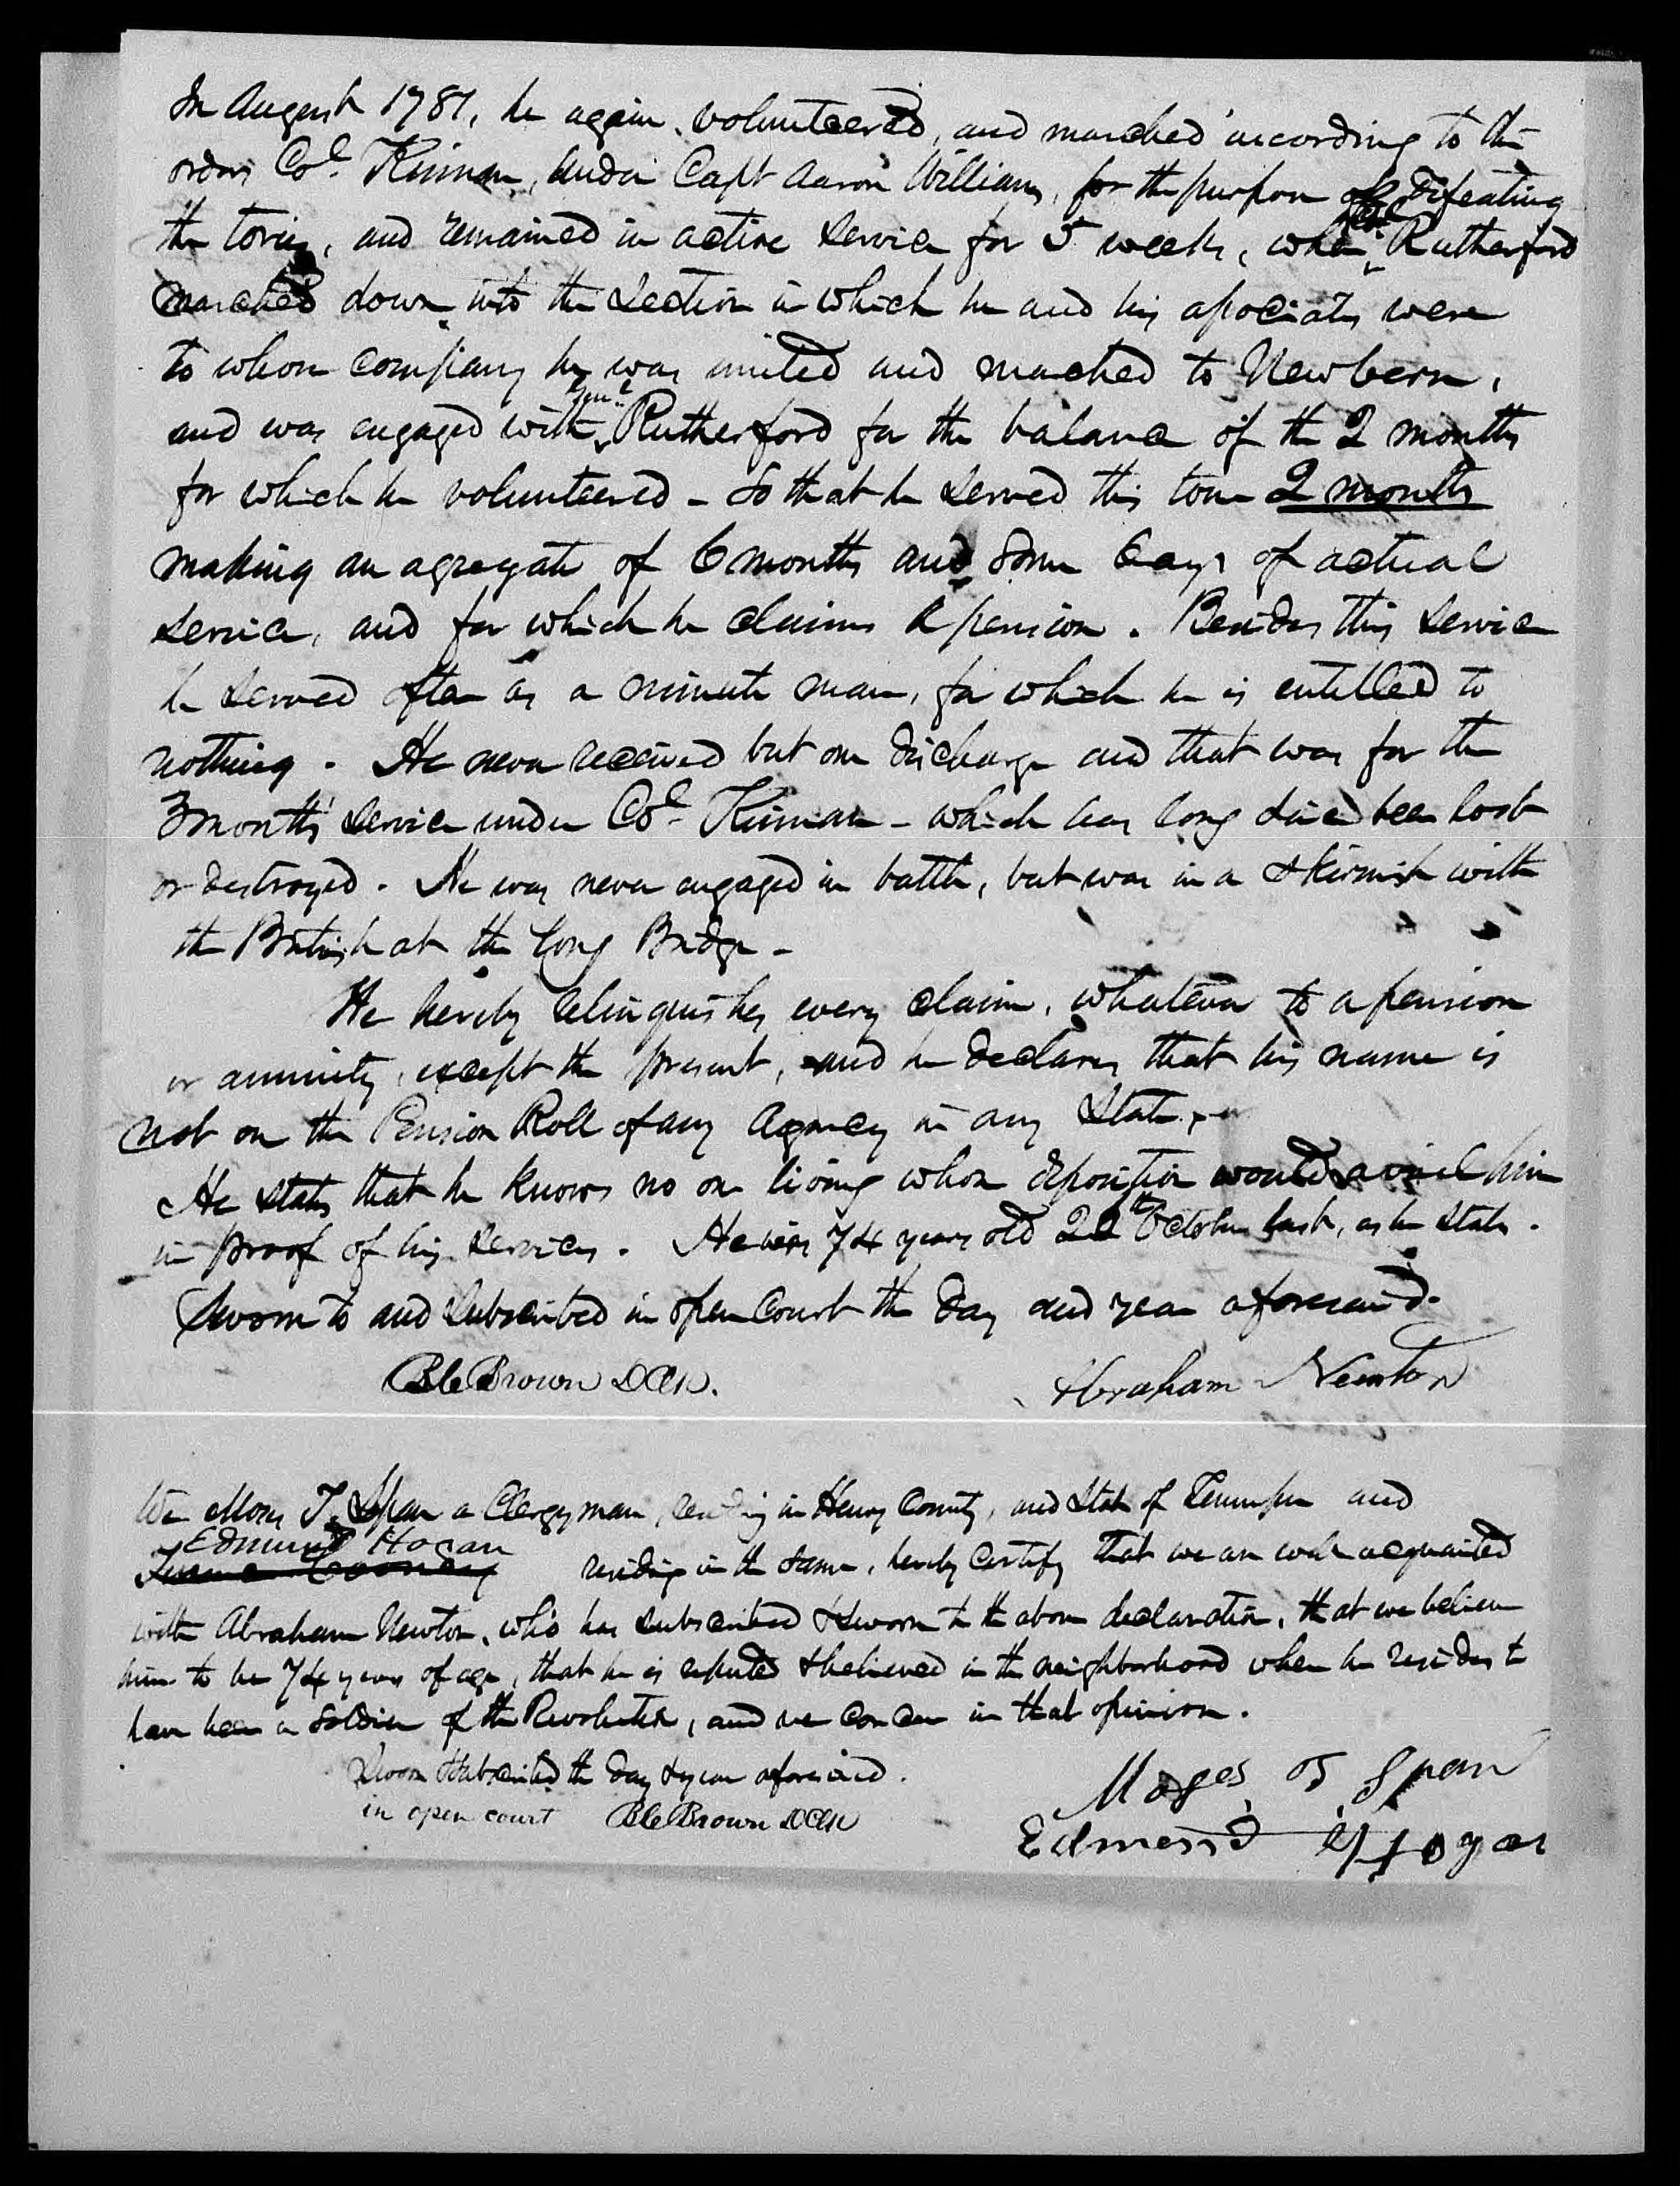 In August 1781, he again volunteered, and marched according to the
orders Col. Kinnan, under Capt Aaron Williams, for the purpose of defeating
the tories, and remained in active service for 5 weeks, when Rutherford
marched down into the section in which he and his associates were
to whose company he was united and marched to Newbern,
and was engaged with Genl. Rutherford for the balance of the 2 months
for which he volunteered - So that he served this tour 2 months
making an agregate of 6 months and some days of actual
service, and for which he claims a pension. Besides this service
he served often as a minute man, for which he is entitled to
nothing. He never received but one discharge and that was for the
3 months' service under Col. Kinnan - which has long since been lost
or destroyed. He was never engaged in battle, but was in a skirmish with
the British at the Long Bridge -
He hereby relinquishes every claim, whatever to a pension
or annuity, except the present, and he declares that his name is
not on the Pension Roll of any Agency in any State.
He states that he knows no one living whose deposition would avail him
in proof of his services. He was 74 years old October last, as he states.
Sworn to and subscribed in open Court the day and year aforesaid.
Brown DClk. Abraham Newton
We Moses T. Span a Clergyman, residing in Henry County, and State of Tennessee and
Edmund Hogan
residing in the same, hereby certify that we are well acquainted
with Abraham Newton, who has subscribed & sworn to the above declaration, that we believe
him to be 74 years of age, that he is reputed & believed in the neighborhood where he resides to
have been a soldier of the Revolution, and we concur in that opinion.
Sworn & subscribed the day & year aforesaid.
in open court Brown DClk
Moses T Span
Edmond Hogan